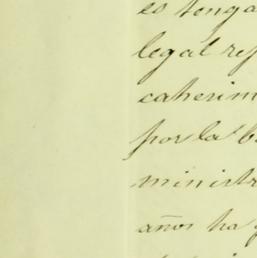 es tenga
legal rep
caherim
por la b
ministr
años ha